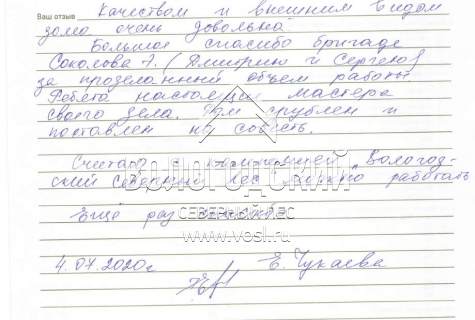 Ваш отзыв
Качеством и внешним видом
дома очень довольна
Большое спасибо бригаде
Соколова А. (Дмитрию и Сергею)
за проделанный объем работы.
Ребята настоящие мастера
своего дела. Дом срублен и
поставлен на совесть.
Считаю с компанией "Вологод-
ский Северный лес" можно работать
Еще раз спасибо.
ВОЛОГОДСКИЙ
СЕВЕРНЫЙ ЛЕС
www.vosl.ru
4.07.2020г Е. Чукаева